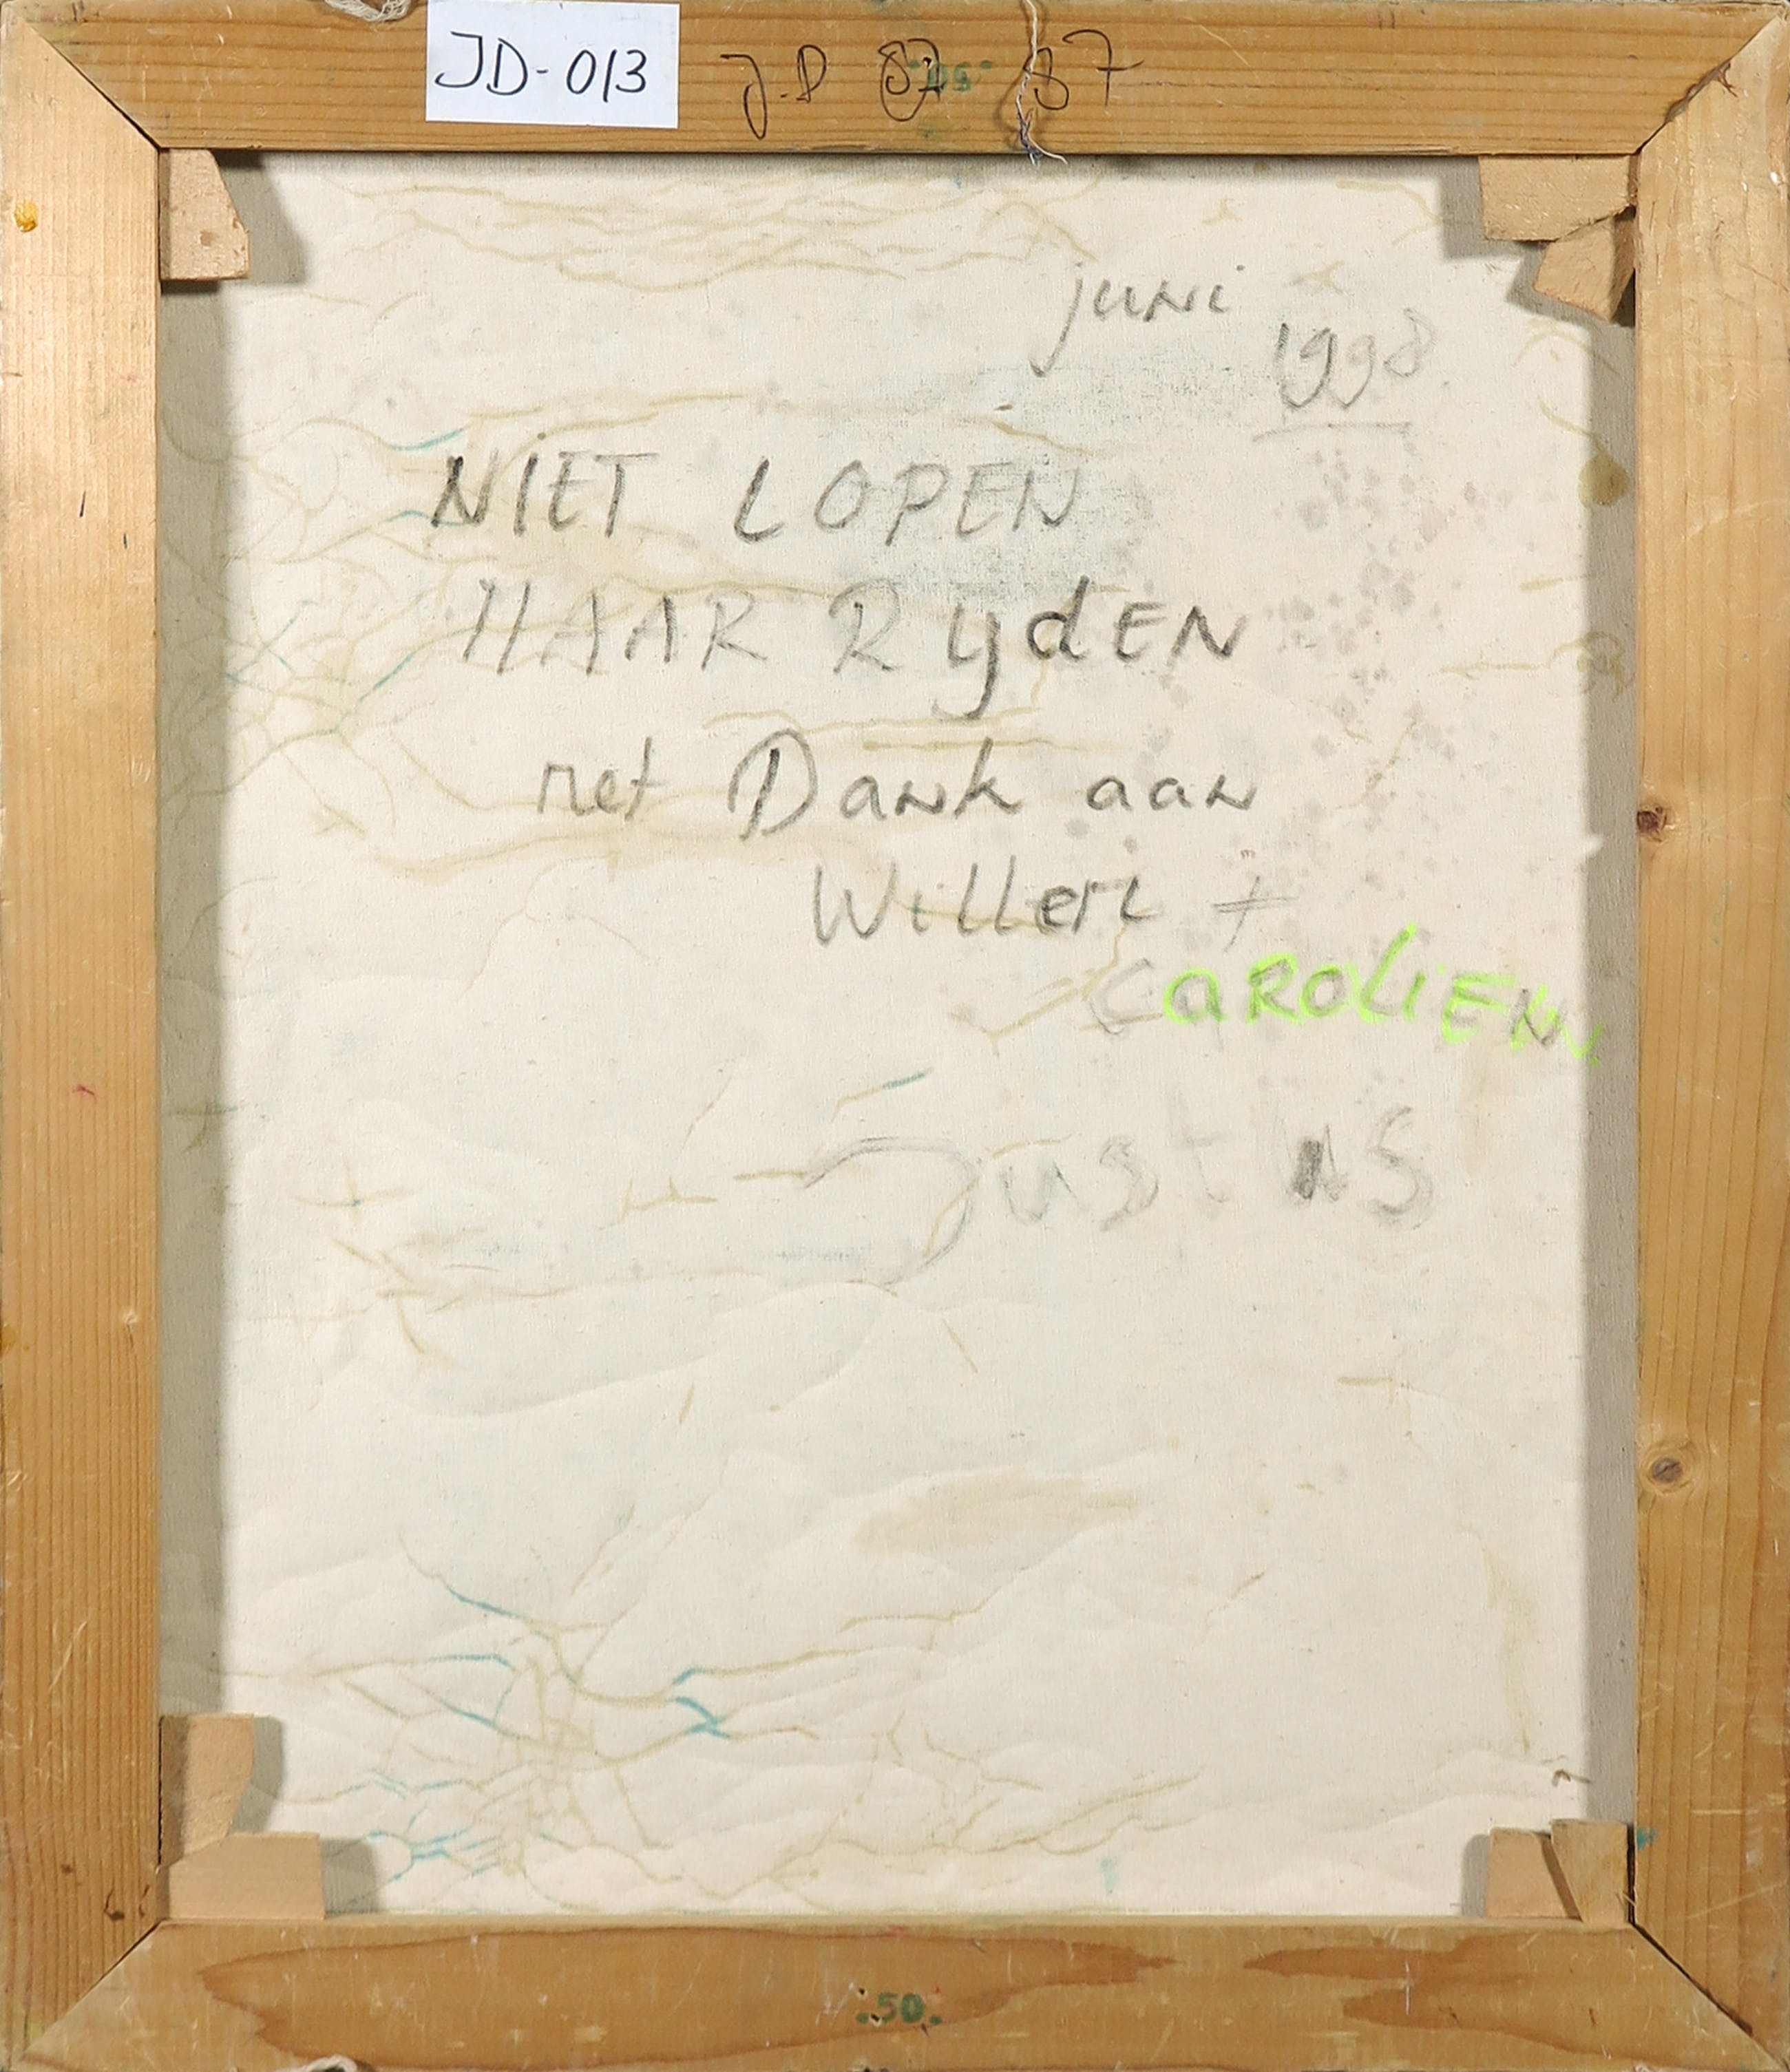 JD-013 J.D 87 87
juni
1998.
NIET LOPEN
MAAR RIJdEN
met Dank aan
Willem +
CAROLIEN
Just us
.50.